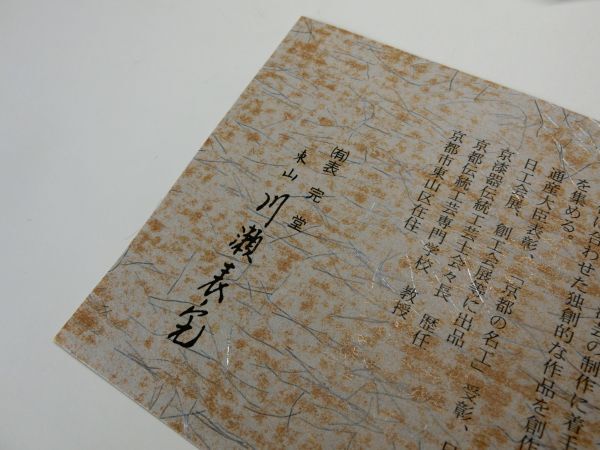 芸の制作に着手
に合わせた独創的な作品を創作
を集める。
通産大臣表彰、「京都の名工」受彰、
日工会展、創工会展等に出品
京漆器伝統工芸士会々長 歴任
京都伝統工芸専門学校 教授
京都市東山区在住
㈲表完堂
東山 川瀬表完